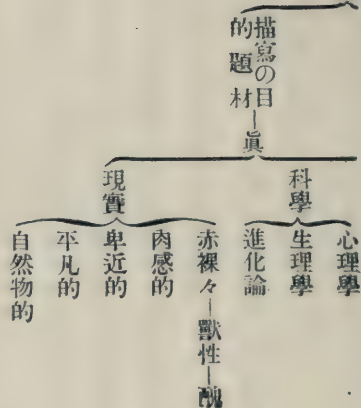 描寫の目
的題材―眞
科學
心理學
生理學
進化論
現實
赤裸々―獸性―醜
肉感的
卑近的
平凡的
自然物的